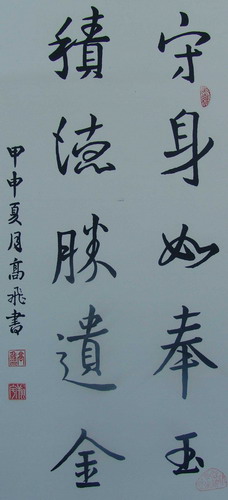 守身如奉玉
積德勝遺金
甲申夏月高飛書